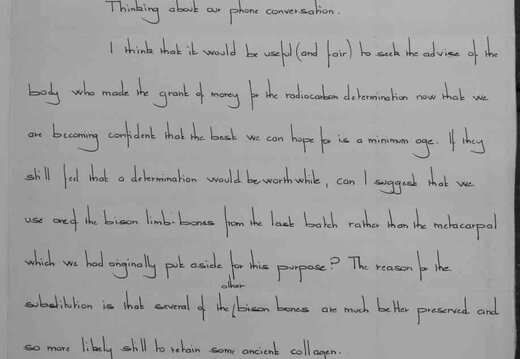 Thinking about our phone conversation.
I think that it would be useful (and fair) to seek the advise of the
body who made the grant of money for the radiocarbon determination now that we
are becoming confident that the best we can hope for is a minimum age. If they
still feel that a determination would be worthwhile, can I suggest that we
use one of the bison limb-bones from the last batch rather than the metacarpal
which we had originally put aside for this purpose? The reason for the
substitution is that several of the other bison bones are much better preserved and
so more likely still to retain some ancient collagen.